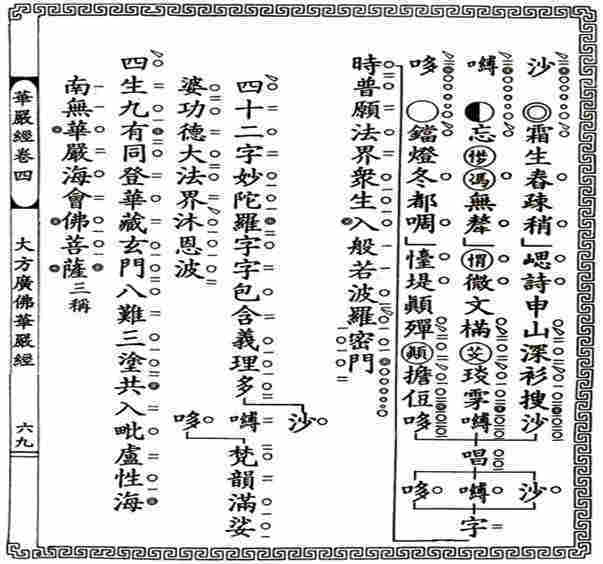 沙 霜生春疎稍 詩申山深衫搜沙
嚩 忘馮無 微文樠雺嚩
哆 鐺燈冬都啁 堤顛殫顛擔哆
唱
沙嚩哆
字
時普願法界眾生入般若波羅密門
四十二字妙陀羅字字包含義理多
沙嚩哆
梵韻滿娑
婆功德大法界沐恩波
四生九有同登華藏玄門八難三塗共入毗盧性海
南無華嚴海會佛菩薩三稱
華嚴經卷四
大方廣佛華嚴經
六九